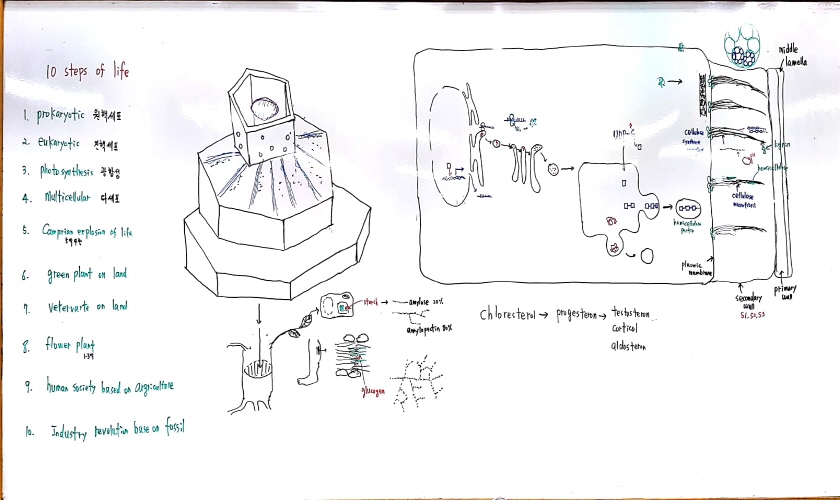 10 steps of life
1. prokaryotic 원핵세포
2. eukaryotic 진핵세포
3. photosynthesis 광합성
4. multicellular 다세포
5. Camprian explosion of life
6. green plant on land
7. vetervarte on land
8. flower plant
9. human society based on argriculture
10. Industry revolution base on fossil
starch → amylose 20%
amylopectin 80%
glucogen
middle
lamella
cellulose
synthase
lignin
hemicellulose
cellulose
microfibril
hemicellulose
pectin
plasmic
membrane
secondary
wall
S1, S2, S3
primary
wall
Chloresterol → progesteron → testosteron
corticol
aldosteron